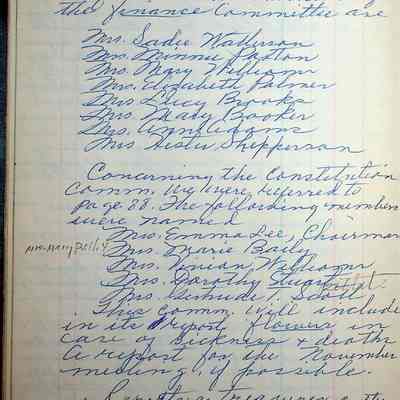 the Finance Committee are
Mrs. Sadie Watterson
Mrs. Minnie Paxton
Mrs. Mary Williams
Mrs. Elizabeth Palmer
Mrs. Lucy Brooks
Mrs. Mary Booker
Mrs. Ann Wiggins
Mrs Hester Shepperson
Concerning the Constitution
Comm. We were referred to
page 88. The following members
were named
Mrs. Emma Lee, Chairman
Mrs. Marie Baily
Mrs. Vivian Williams
Mrs. Dorothy
Mrs. Gertrude V. Scott
This Comm. will include
in its report flowers in
case of sickness & deaths
A report for the November
meeting, if possible.